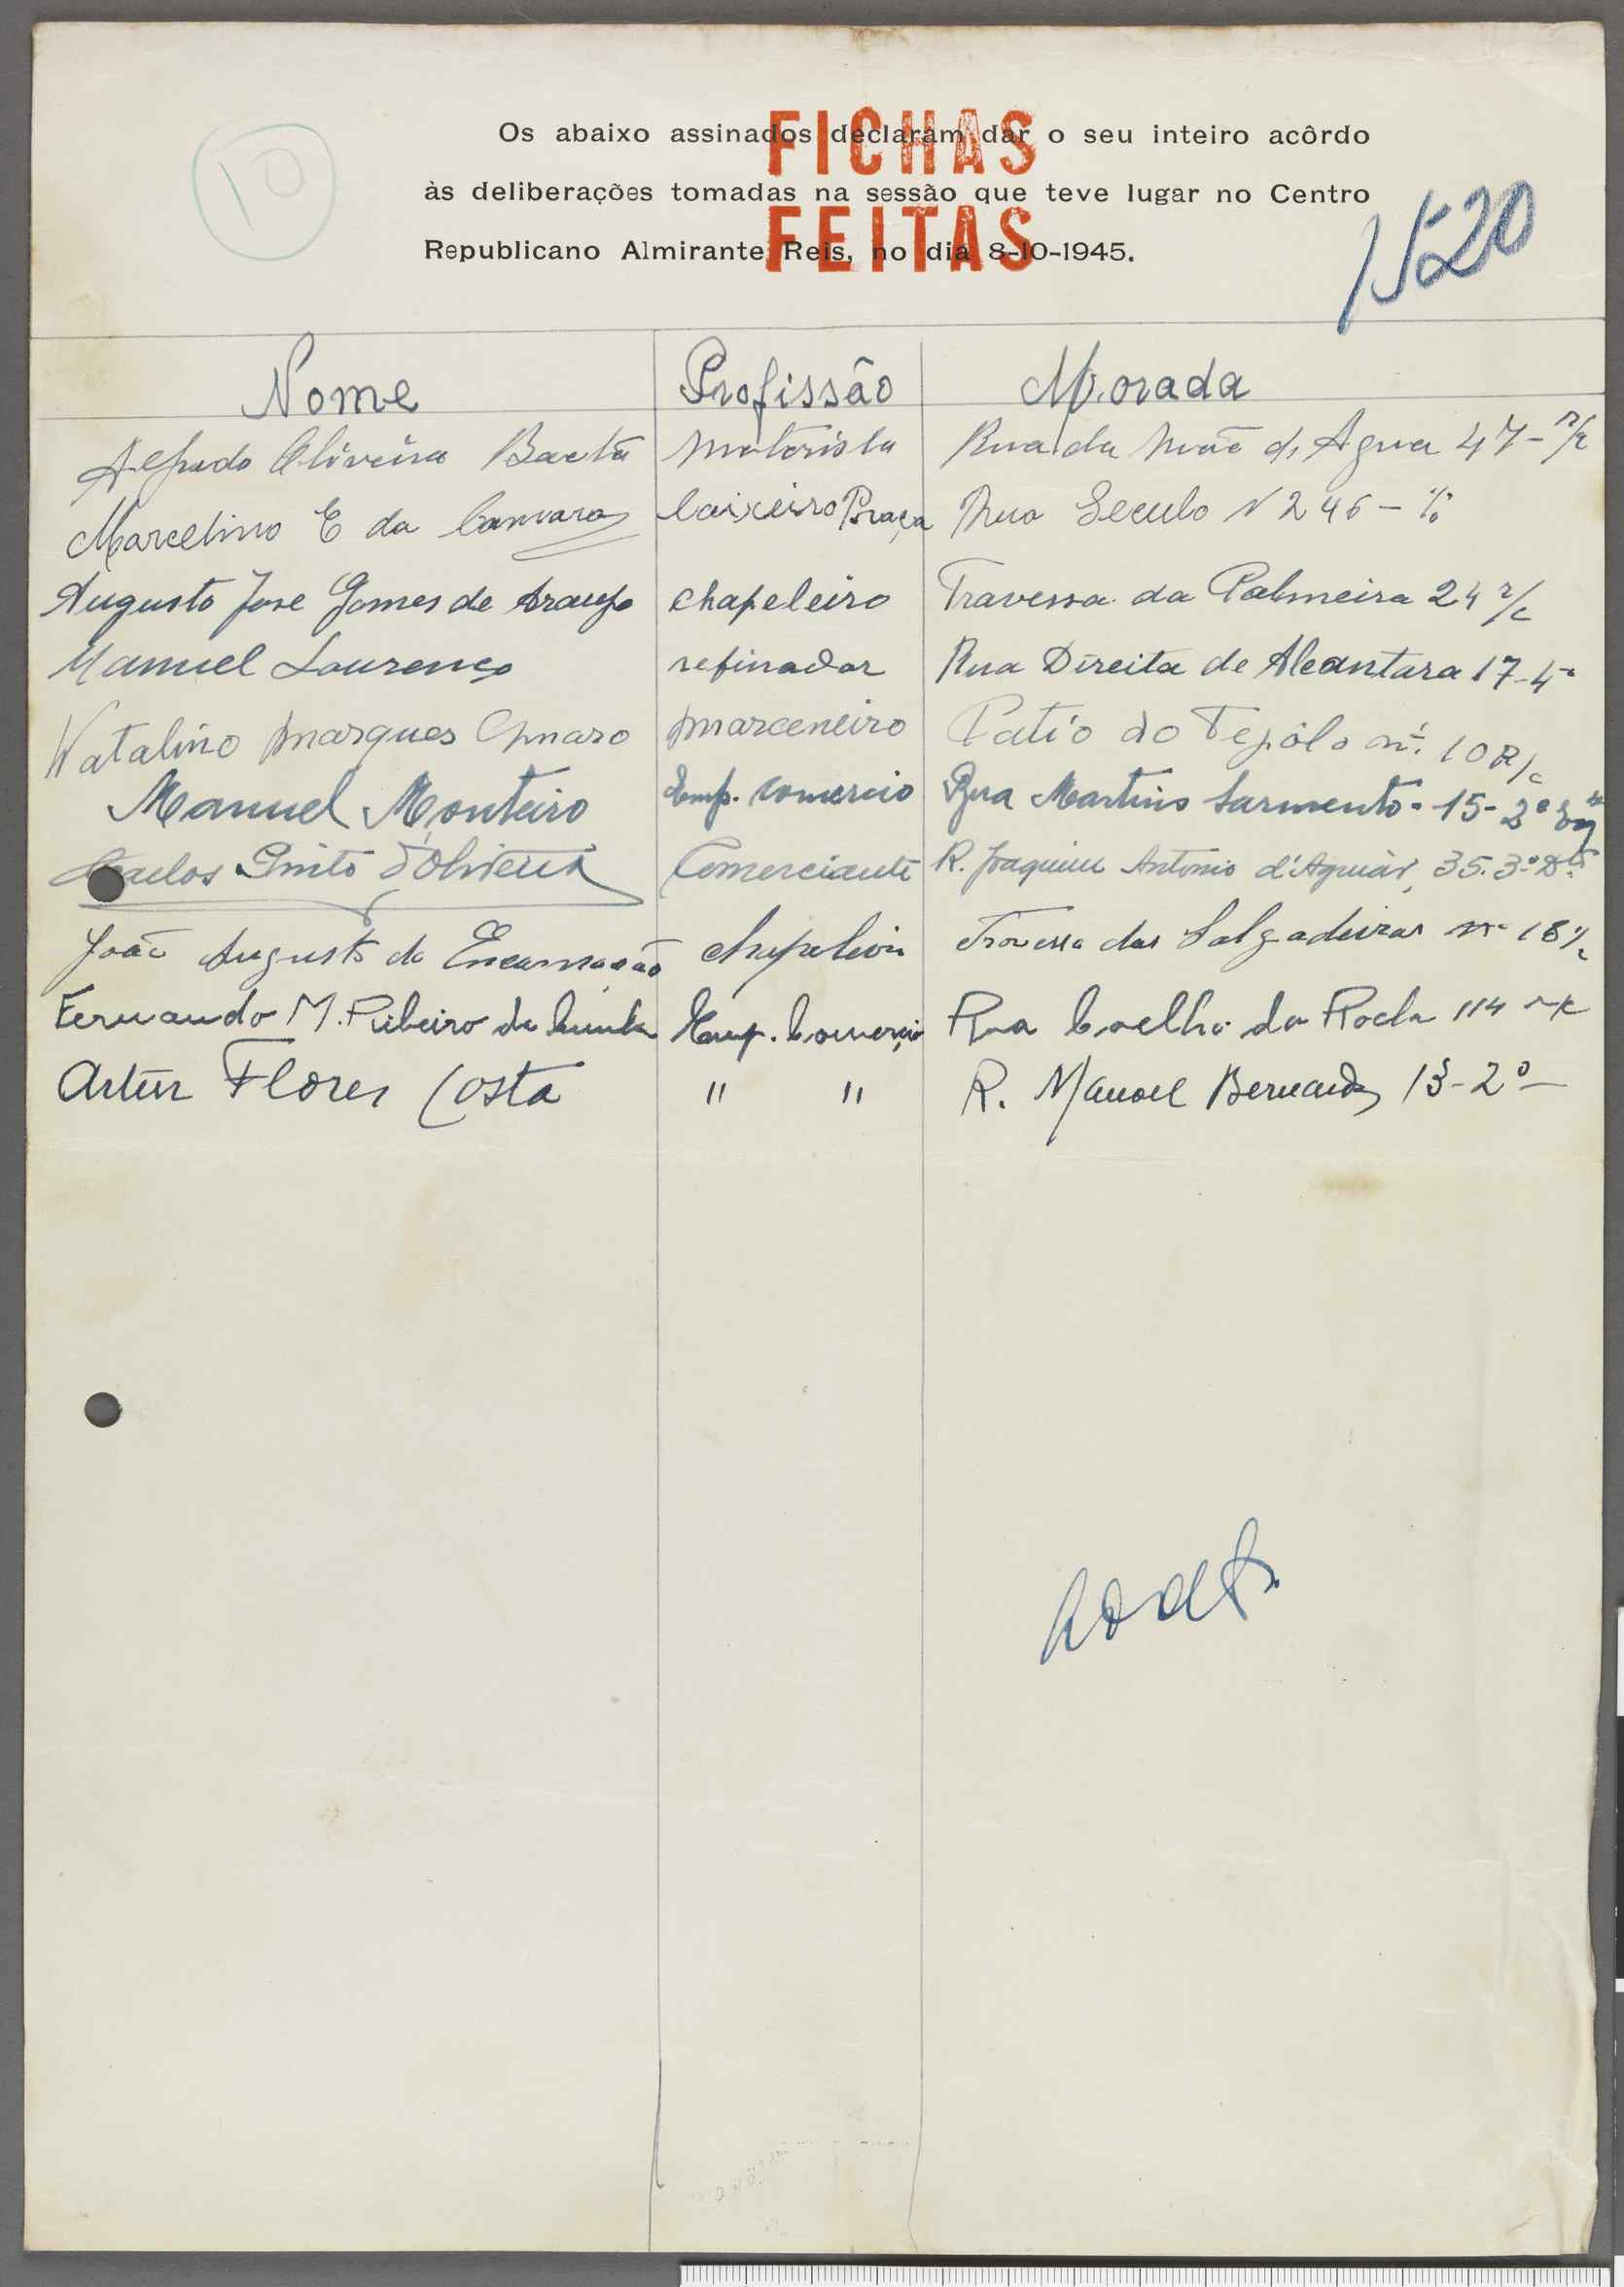 10
FICHAS
FEITAS
Os abaixo assinados declaram dar o seu inteiro acôrdo
às deliberações tomadas na sessão que teve lugar no Centro
Republicano Almirante Reis, no dia 8-10-1945.
1520
Nome Profissão Morada
Alfredo Oliveira Baeta motorista Rua da Mãe de Agua 47 - r/c
Marcelino E da Camara Caixeiro Praça Rua Seculo N 246 -
Augusto Jose Gomes de Araujo chapeleiro Travessa da Palmeira 24 r/c
Manuel Lourenço refinador Rua Direita de Alcantara 17-4º
Natalino Marques Amaro marceneiro Patio do Tejolo nº 10 R/c
Manuel Monteiro Emp. Comercio Rua Martins Sarmento - 15 - 2º Esq
Carlos Pinto d'Oliveira Comerciante R. Joaquim Antonio d'Aguiar, 35. 3º Dtº
João Augusto da Encarnação chapeleiro Travessa das Salgadeiras nº 18 r/c
Fernando M. Ribeiro da Cunha Emp. Comercio Rua Coelho da Rocha 114 r/c
Artur Flores Costa " " R. Manoel Bernardes 13-2º